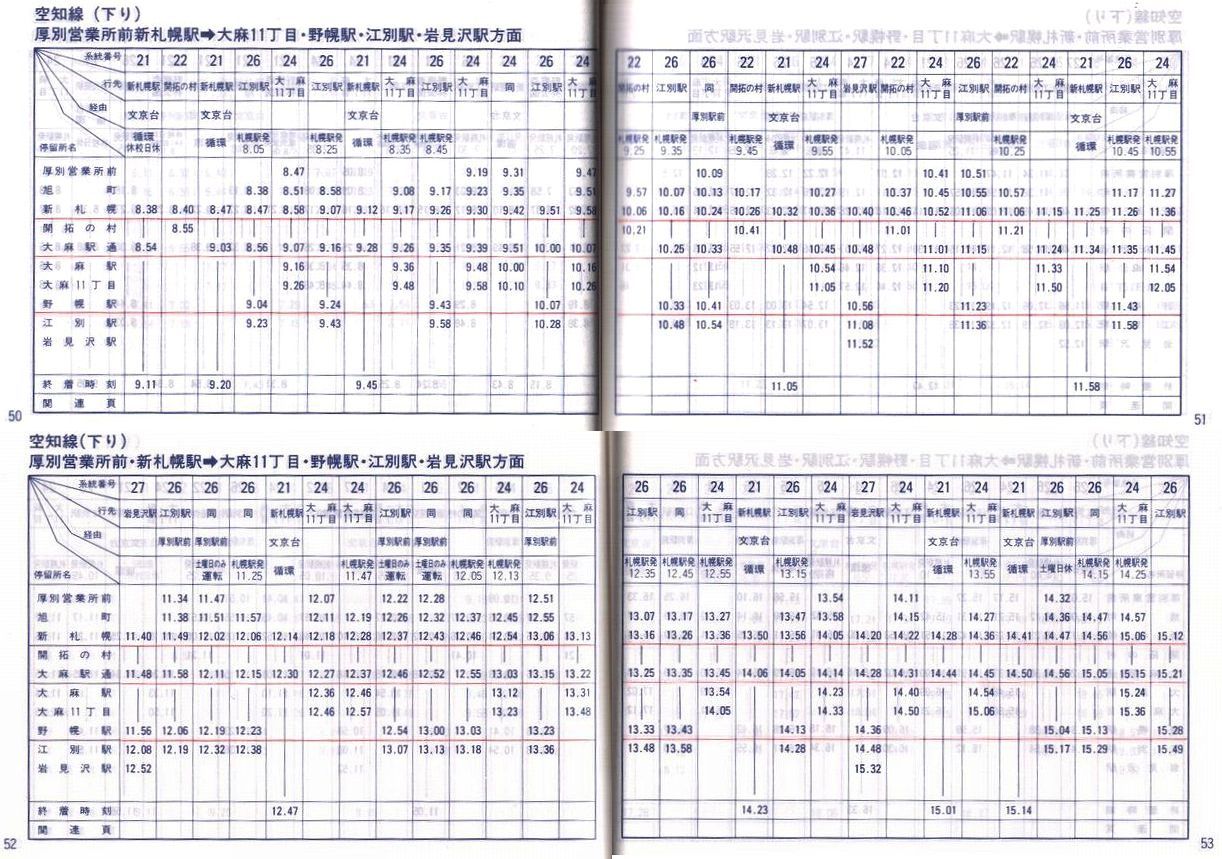 空知線（下り）
厚別営業所前新札幌駅➡大麻11丁目・野幌駅・江別駅・岩見沢駅方面
系統番号 21 22 21 26 24 26 21 24 26 24 24 26 24
行先 新札幌駅 開拓の村 新札幌駅 江別駅 大麻11丁目 江別駅 新札幌駅 大麻11丁目 江別駅 大麻11丁目 同 江別駅 大麻11丁目
経由 文京台 文京台 文京台
停留所名 循環休校日休 循環 札幌駅発8.05 札幌駅発8.25 循環 札幌駅発8.35 札幌駅発8.45
厚別営業所前 8.47 9.19 9.31 9.47
旭町 8.38 8.51 8.58 9.08 9.17 9.23 9.35 9.51
新札幌 8.38 8.40 8.47 8.47 8.58 9.07 9.12 9.17 9.26 9.30 9.42 9.51 9.58
開拓の村 8.55
大麻駅通 8.54 9.03 8.56 9.07 9.16 9.28 9.26 9.35 9.39 9.51 10.00 10.07
大麻駅 9.16 9.36 9.48 10.00 10.16
大麻11丁目 9.26 9.48 9.58 10.10 10.26
野幌駅 9.04 9.24 9.43 10.07
江別駅 9.23 9.43 9.58 10.28
岩見沢駅
終着時刻 9.11 9.20 9.45
関連頁
50
22 26 26 22 21 24 27 22 24 26 22 24 21 26 24
開拓の村 江別駅 同 開拓の村 新札幌駅 大麻11丁目 岩見沢駅 開拓の村 大麻11丁目 江別駅 開拓の村 大麻11丁目 新札幌駅 江別駅 大麻11丁目
厚別駅前 文京台 厚別駅前 文京台
札幌駅発9.25 札幌駅発9.35 札幌駅発9.45 循環 札幌駅発9.55 札幌駅発10.05 札幌駅発10.25 循環 札幌駅発10.45 札幌駅発10.55
10.09 10.41 10.51
9.57 10.07 10.13 10.17 10.27 10.37 10.45 10.55 10.57 11.17 11.27
10.06 10.16 10.24 10.26 10.32 10.36 10.40 10.46 10.52 11.06 11.06 11.15 11.25 11.26 11.36
10.21 10.41 11.01 11.21
10.25 10.33 10.48 10.45 10.48 11.01 11.15 11.24 11.34 11.35 11.45
10.54 11.10 11.33 11.54
11.05 11.20 11.50 12.05
10.33 10.41 10.56 11.23 11.43
10.48 10.54 11.08 11.36 11.58
11.52
11.05 11.58
51
空知線（下り）
厚別営業所前・新札幌駅➡大麻11丁目・野幌駅・江別駅・岩見沢駅方面
系統番号 27 26 26 26 21 24 24 26 26 26 24 26 24
行先 岩見沢駅 江別駅 同 同 新札幌駅 大麻11丁目 大麻11丁目 江別駅 同 同 大麻11丁目 江別駅 大麻11丁目
経由 厚別駅前 厚別駅前 文京台 厚別駅前 厚別駅前 厚別駅前
停留所名 土曜日のみ運転 札幌駅発11.25 循環 札幌駅発11.47 土曜日のみ 土曜日のみ運転 札幌駅発12.05 札幌駅発12.13
厚別営業所前 11.34 11.47 12.07 12.22 12.28 12.51
旭町 11.38 11.51 11.57 12.11 12.19 12.26 12.32 12.37 12.45 12.55
新札幌 11.40 11.49 12.02 12.06 12.14 12.18 12.28 12.37 12.43 12.46 12.54 13.06 13.13
開拓の村
大麻駅通 11.48 11.58 12.11 12.15 12.30 12.27 12.37 12.46 12.52 12.55 13.03 13.15 13.22
大麻駅 12.36 12.46 13.12 13.31
大麻11丁目 12.46 12.57 13.23 13.48
野幌駅 11.56 12.06 12.19 12.23 12.54 13.00 13.03 13.23
江別駅 12.08 12.19 12.32 12.38 13.07 13.13 13.18 13.36
岩見沢駅 12.52
終着時刻 12.47
関連頁
52
26 26 24 21 26 24 27 24 21 24 21 26 26 24 26
江別駅 同 大麻11丁目 新札幌駅 江別駅 大麻11丁目 岩見沢駅 大麻11丁目 新札幌駅 大麻11丁目 新札幌駅 江別駅 江別駅 大麻11丁目 江別駅
文京台 文京台 文京台 厚別駅前
札幌駅発12.35 札幌駅発12.45 札幌駅発12.55 循環 札幌駅発13.15 循環 札幌駅発13.55 循環 土曜日休 札幌駅発14.15 札幌駅発14.25
13.54 14.11 14.32
13.07 13.17 13.27 13.47 13.58 14.15 14.27 14.36 14.47 14.57
13.16 13.26 13.36 13.50 13.56 14.05 14.20 14.22 14.28 14.36 14.41 14.47 14.56 15.06 15.12
13.25 13.35 13.45 14.06 14.05 14.14 14.28 14.31 14.44 14.45 14.50 14.56 15.05 15.15 15.21
13.54 14.23 14.40 14.54 15.24
14.05 14.33 14.50 15.06 15.36
13.33 13.43 14.13 14.36 15.04 15.13 15.28
13.48 13.58 14.28 14.48 15.17 15.29 15.49
15.32
14.23 15.01 15.14
53